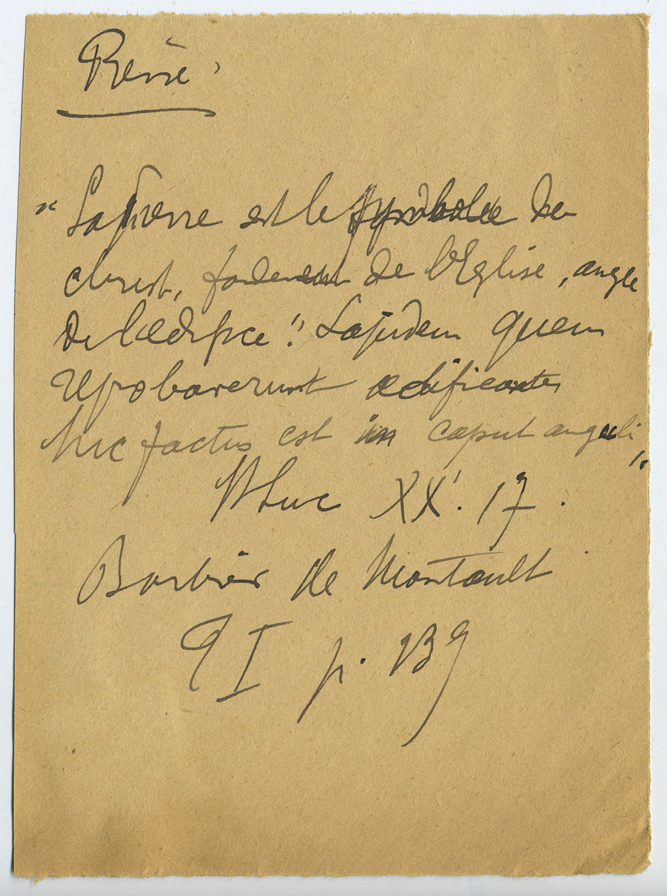 Pierre
" La pierre est le symbole du
christ, fondement de l'Eglise, angle
de l'edifice ". Lapidem quem
reprobaverunt aedificantes
hic factus est in caput anguli "
St Luc XX. 17.
Barbier de Montault
T I p. 139